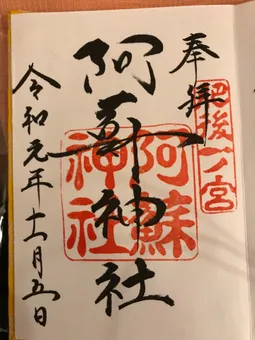 奉拝
肥後一ノ宮
阿蘇神社
阿蘇神社
令和元年十一月五日